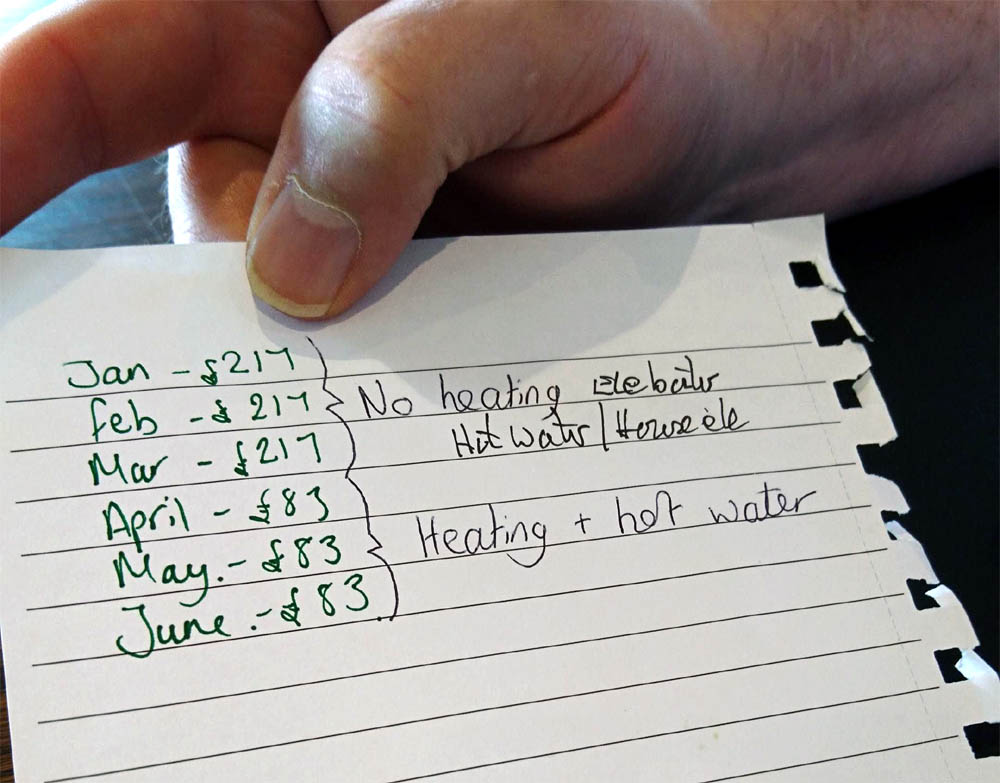 Jan - £217
feb - £217 No heating
Hot water/House ele
Mar - £217
April - £83
Heating + hot water
May. - £83
June. - £83